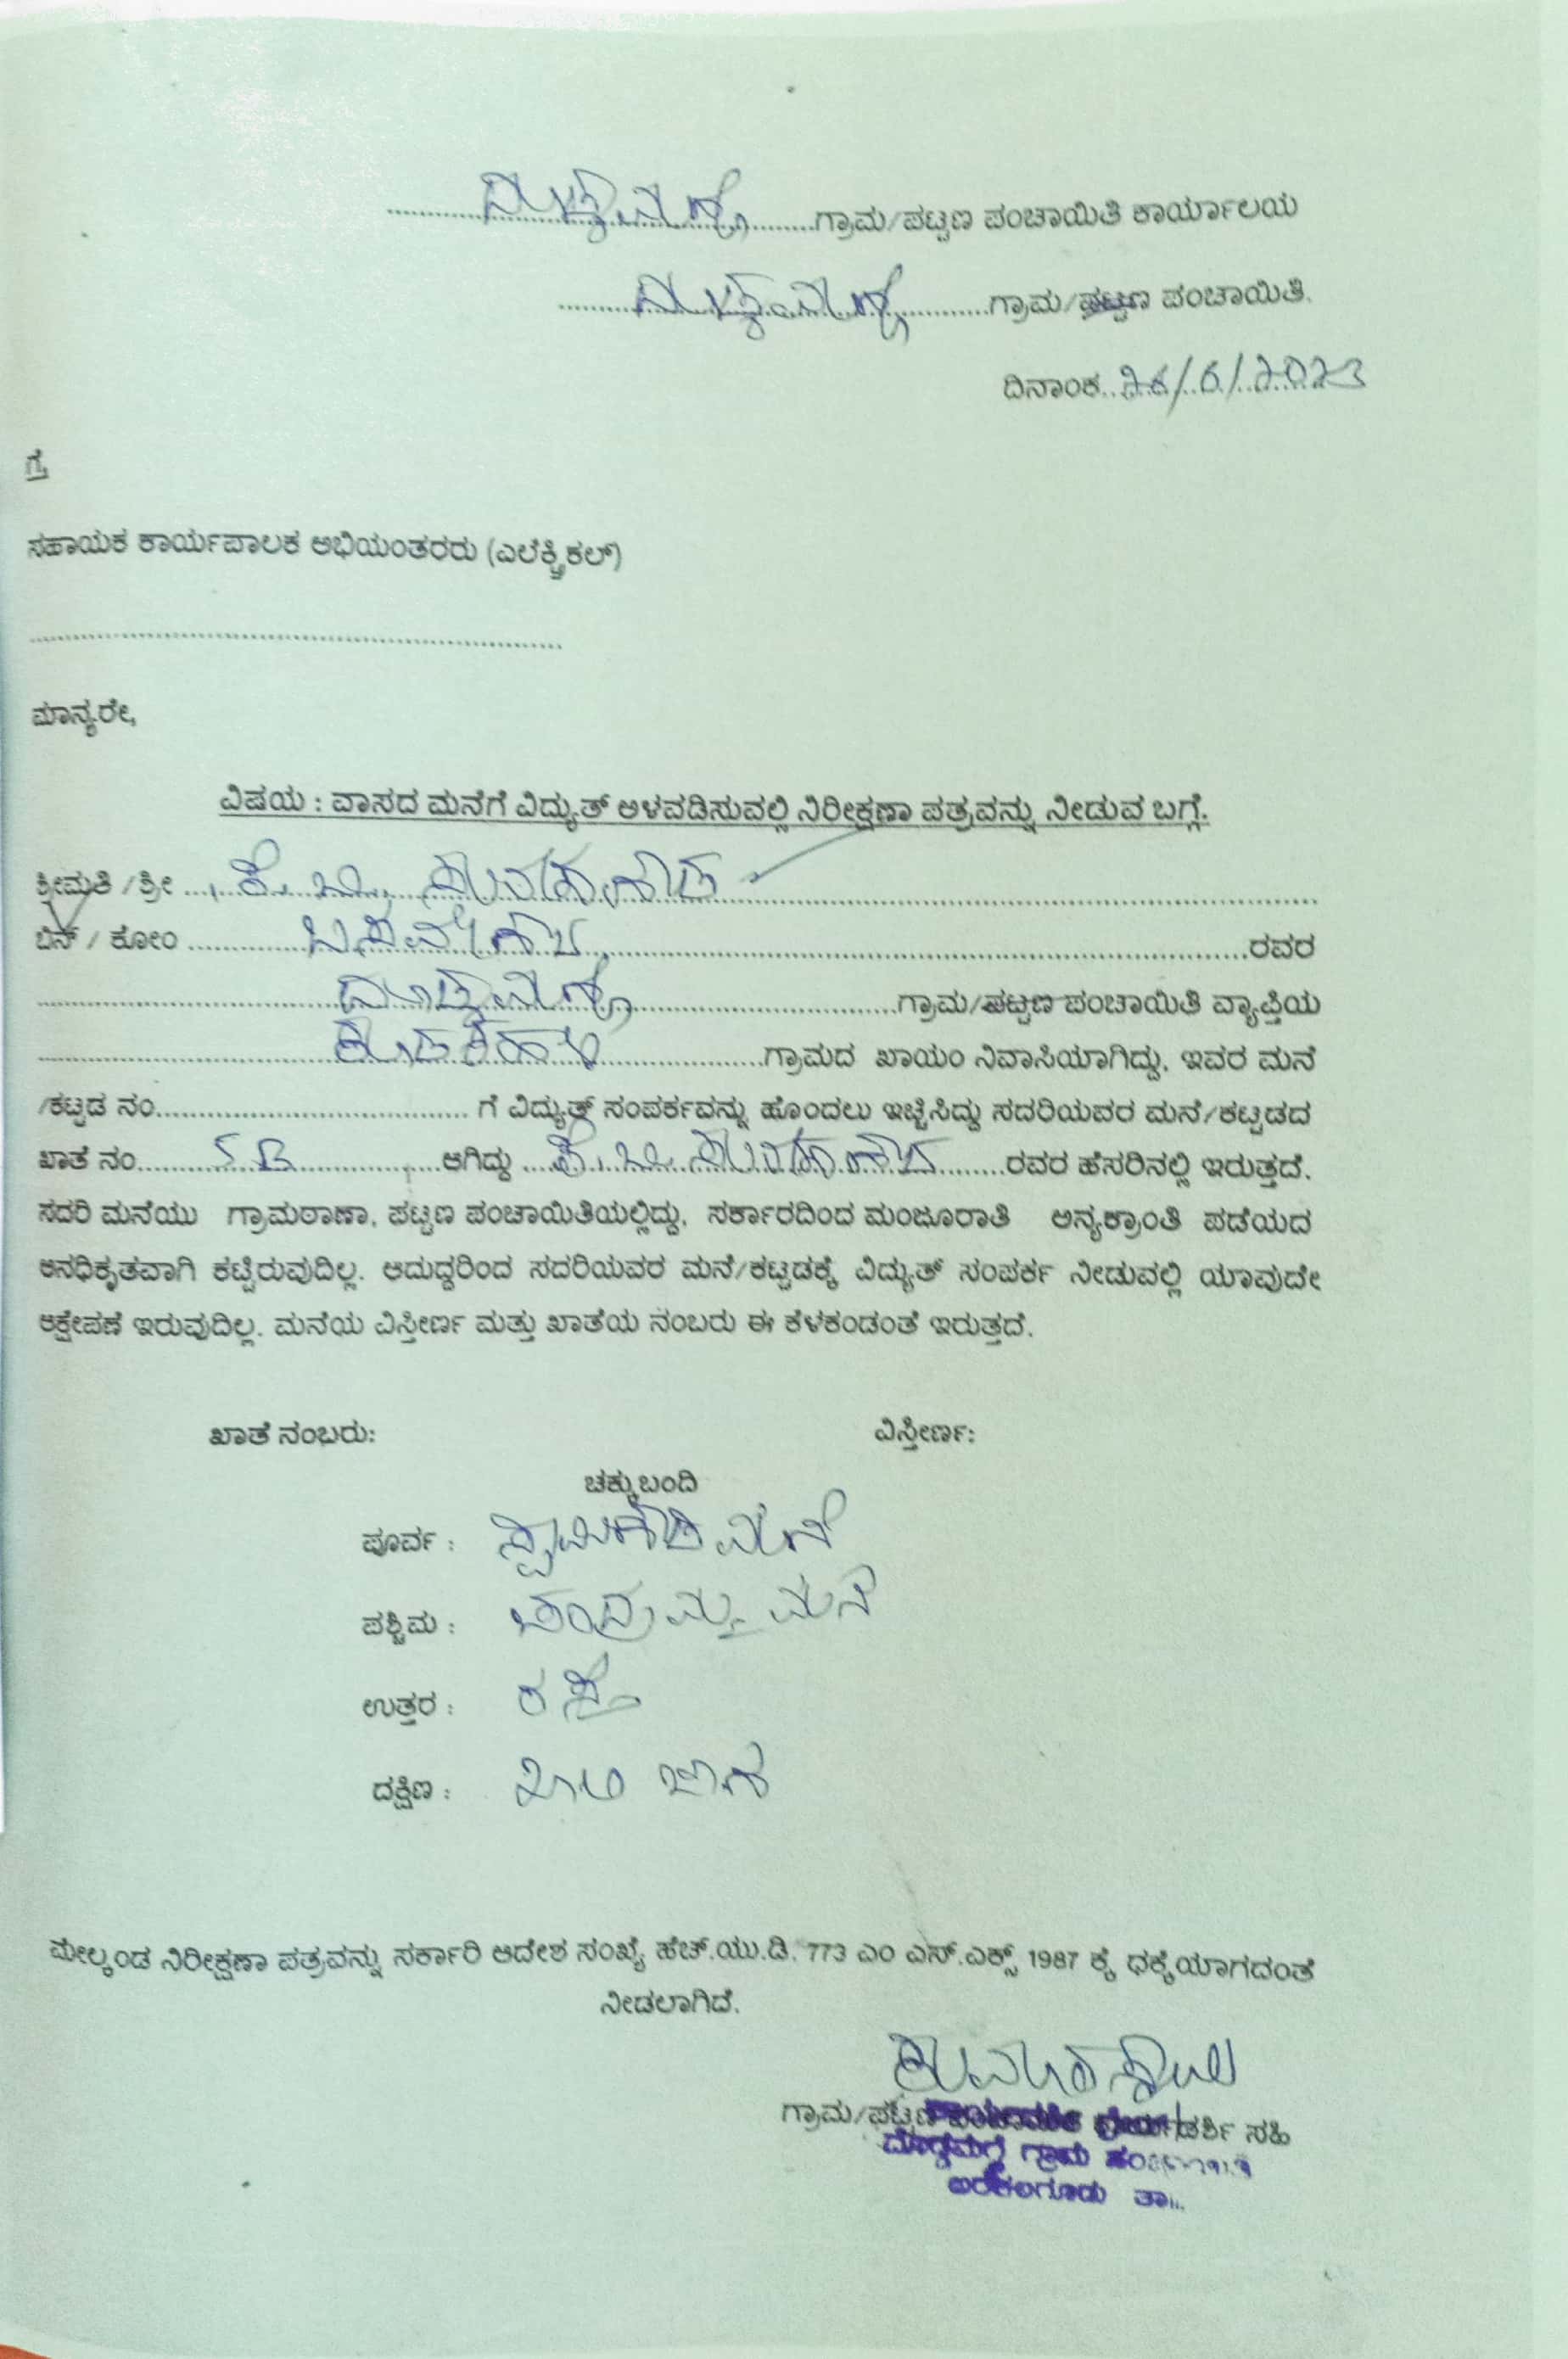 ದೊಡ್ಡಮಗ್ಗೆ ಗ್ರಾಮ/ಪಟ್ಟಣ ಪಂಚಾಯಿತಿ ಕಾರ್ಯಾಲಯ
ದೊಡ್ಡಮಗ್ಗೆ ಗ್ರಾಮ/ಪಟ್ಟಣ ಪಂಚಾಯಿತಿ.
ದಿನಾಂಕ
ಗೆ,
ಸಹಾಯಕ ಕಾರ್ಯಪಾಲಕ ಅಭಿಯಂತರರು (ಎಲೆಕ್ಟ್ರಿಕಲ್)
ಮಾನ್ಯರೇ,
ವಿಷಯ : ವಾಸದ ಮನೆಗೆ ವಿದ್ಯುತ್ ಅಳವಡಿಸುವಲ್ಲಿ ನಿರೀಕ್ಷಣಾ ಪತ್ರವನ್ನು ನೀಡುವ ಬಗ್ಗೆ.
ಶ್ರೀಮತಿ /ಶ್ರೀ ಕೆ. ಬಿ.
ಬಿನ್ / ಕೋಂ ರವರ
ದೊಡ್ಡಮಗ್ಗೆ ಗ್ರಾಮ/ಪಟ್ಟಣ ಪಂಚಾಯಿತಿ ವ್ಯಾಪ್ತಿಯ
ಗ್ರಾಮದ ಖಾಯಂ ನಿವಾಸಿಯಾಗಿದ್ದು, ಇವರ ಮನೆ
/ಕಟ್ಟಡ ನಂ. ಗೆ ವಿದ್ಯುತ್ ಸಂಪರ್ಕವನ್ನು ಹೊಂದಲು ಇಚ್ಛಿಸಿದ್ದು ಸದರಿಯವರ ಮನೆ/ಕಟ್ಟಡದ
ಖಾತೆ ನಂ. ಆಗಿದ್ದು ಕೆ. ಬಿ. ರವರ ಹೆಸರಿನಲ್ಲಿ ಇರುತ್ತದೆ.
ಸದರಿ ಮನೆಯು ಗ್ರಾಮಠಾಣಾ, ಪಟ್ಟಣ ಪಂಚಾಯಿತಿಯಲ್ಲಿದ್ದು, ಸರ್ಕಾರದಿಂದ ಮಂಜೂರಾತಿ ಅನ್ಯಕ್ರಾಂತಿ ಪಡೆಯದ
ಅನಧಿಕೃತವಾಗಿ ಕಟ್ಟಿರುವುದಿಲ್ಲ. ಆದುದ್ದರಿಂದ ಸದರಿಯವರ ಮನೆ/ಕಟ್ಟಡಕ್ಕೆ ವಿದ್ಯುತ್ ಸಂಪರ್ಕ ನೀಡುವಲ್ಲಿ ಯಾವುದೇ
ಆಕ್ಷೇಪಣೆ ಇರುವುದಿಲ್ಲ. ಮನೆಯ ವಿಸ್ತೀರ್ಣ ಮತ್ತು ಖಾತೆಯ ನಂಬರು ಈ ಕೆಳಕಂಡಂತೆ ಇರುತ್ತದೆ.
ಖಾತೆ ನಂಬರು: ವಿಸ್ತೀರ್ಣ:
ಚಕ್ಕುಬಂದಿ
ಪೂರ್ವ : ಮನೆ
ಪಶ್ಚಿಮ : ಚಂದ್ರಮ್ಮ ಮನೆ
ಉತ್ತರ : ರಸ್ತೆ
ದಕ್ಷಿಣ : ಖಾಲಿ ಜಾಗ
ಮೇಲ್ಕಂಡ ನಿರೀಕ್ಷಣಾ ಪತ್ರವನ್ನು ಸರ್ಕಾರಿ ಆದೇಶ ಸಂಖ್ಯೆ ಹೆಚ್.ಯು.ಡಿ. 773 ಎಂ ಎಸ್.ಎಕ್ಸ್ 1987 ಕ್ಕೆ ಧಕ್ಕೆಯಾಗದಂತೆ
ನೀಡಲಾಗಿದೆ.
ಗ್ರಾಮ/ಪಟ್ಟಣ ಸಹಿ
ದೊಡ್ಡಮಗ್ಗೆ ಗ್ರಾಮ
ಅರಕಲಗೂಡು ತಾ||